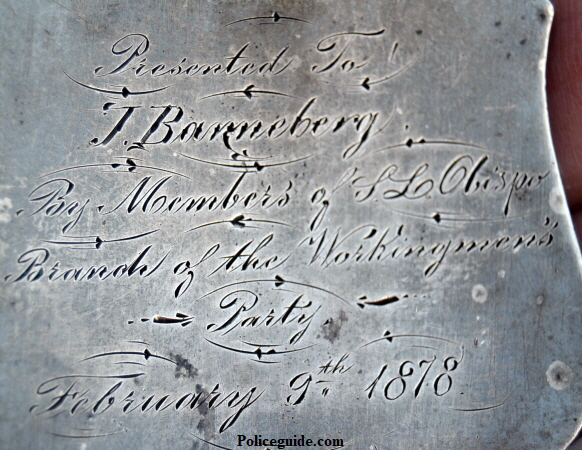 Presented To
T. Banneberg.
By Members of S. L. Obispo
Branch of the Workingmen's
Party.
February 9th 1878.
Policeguide.com